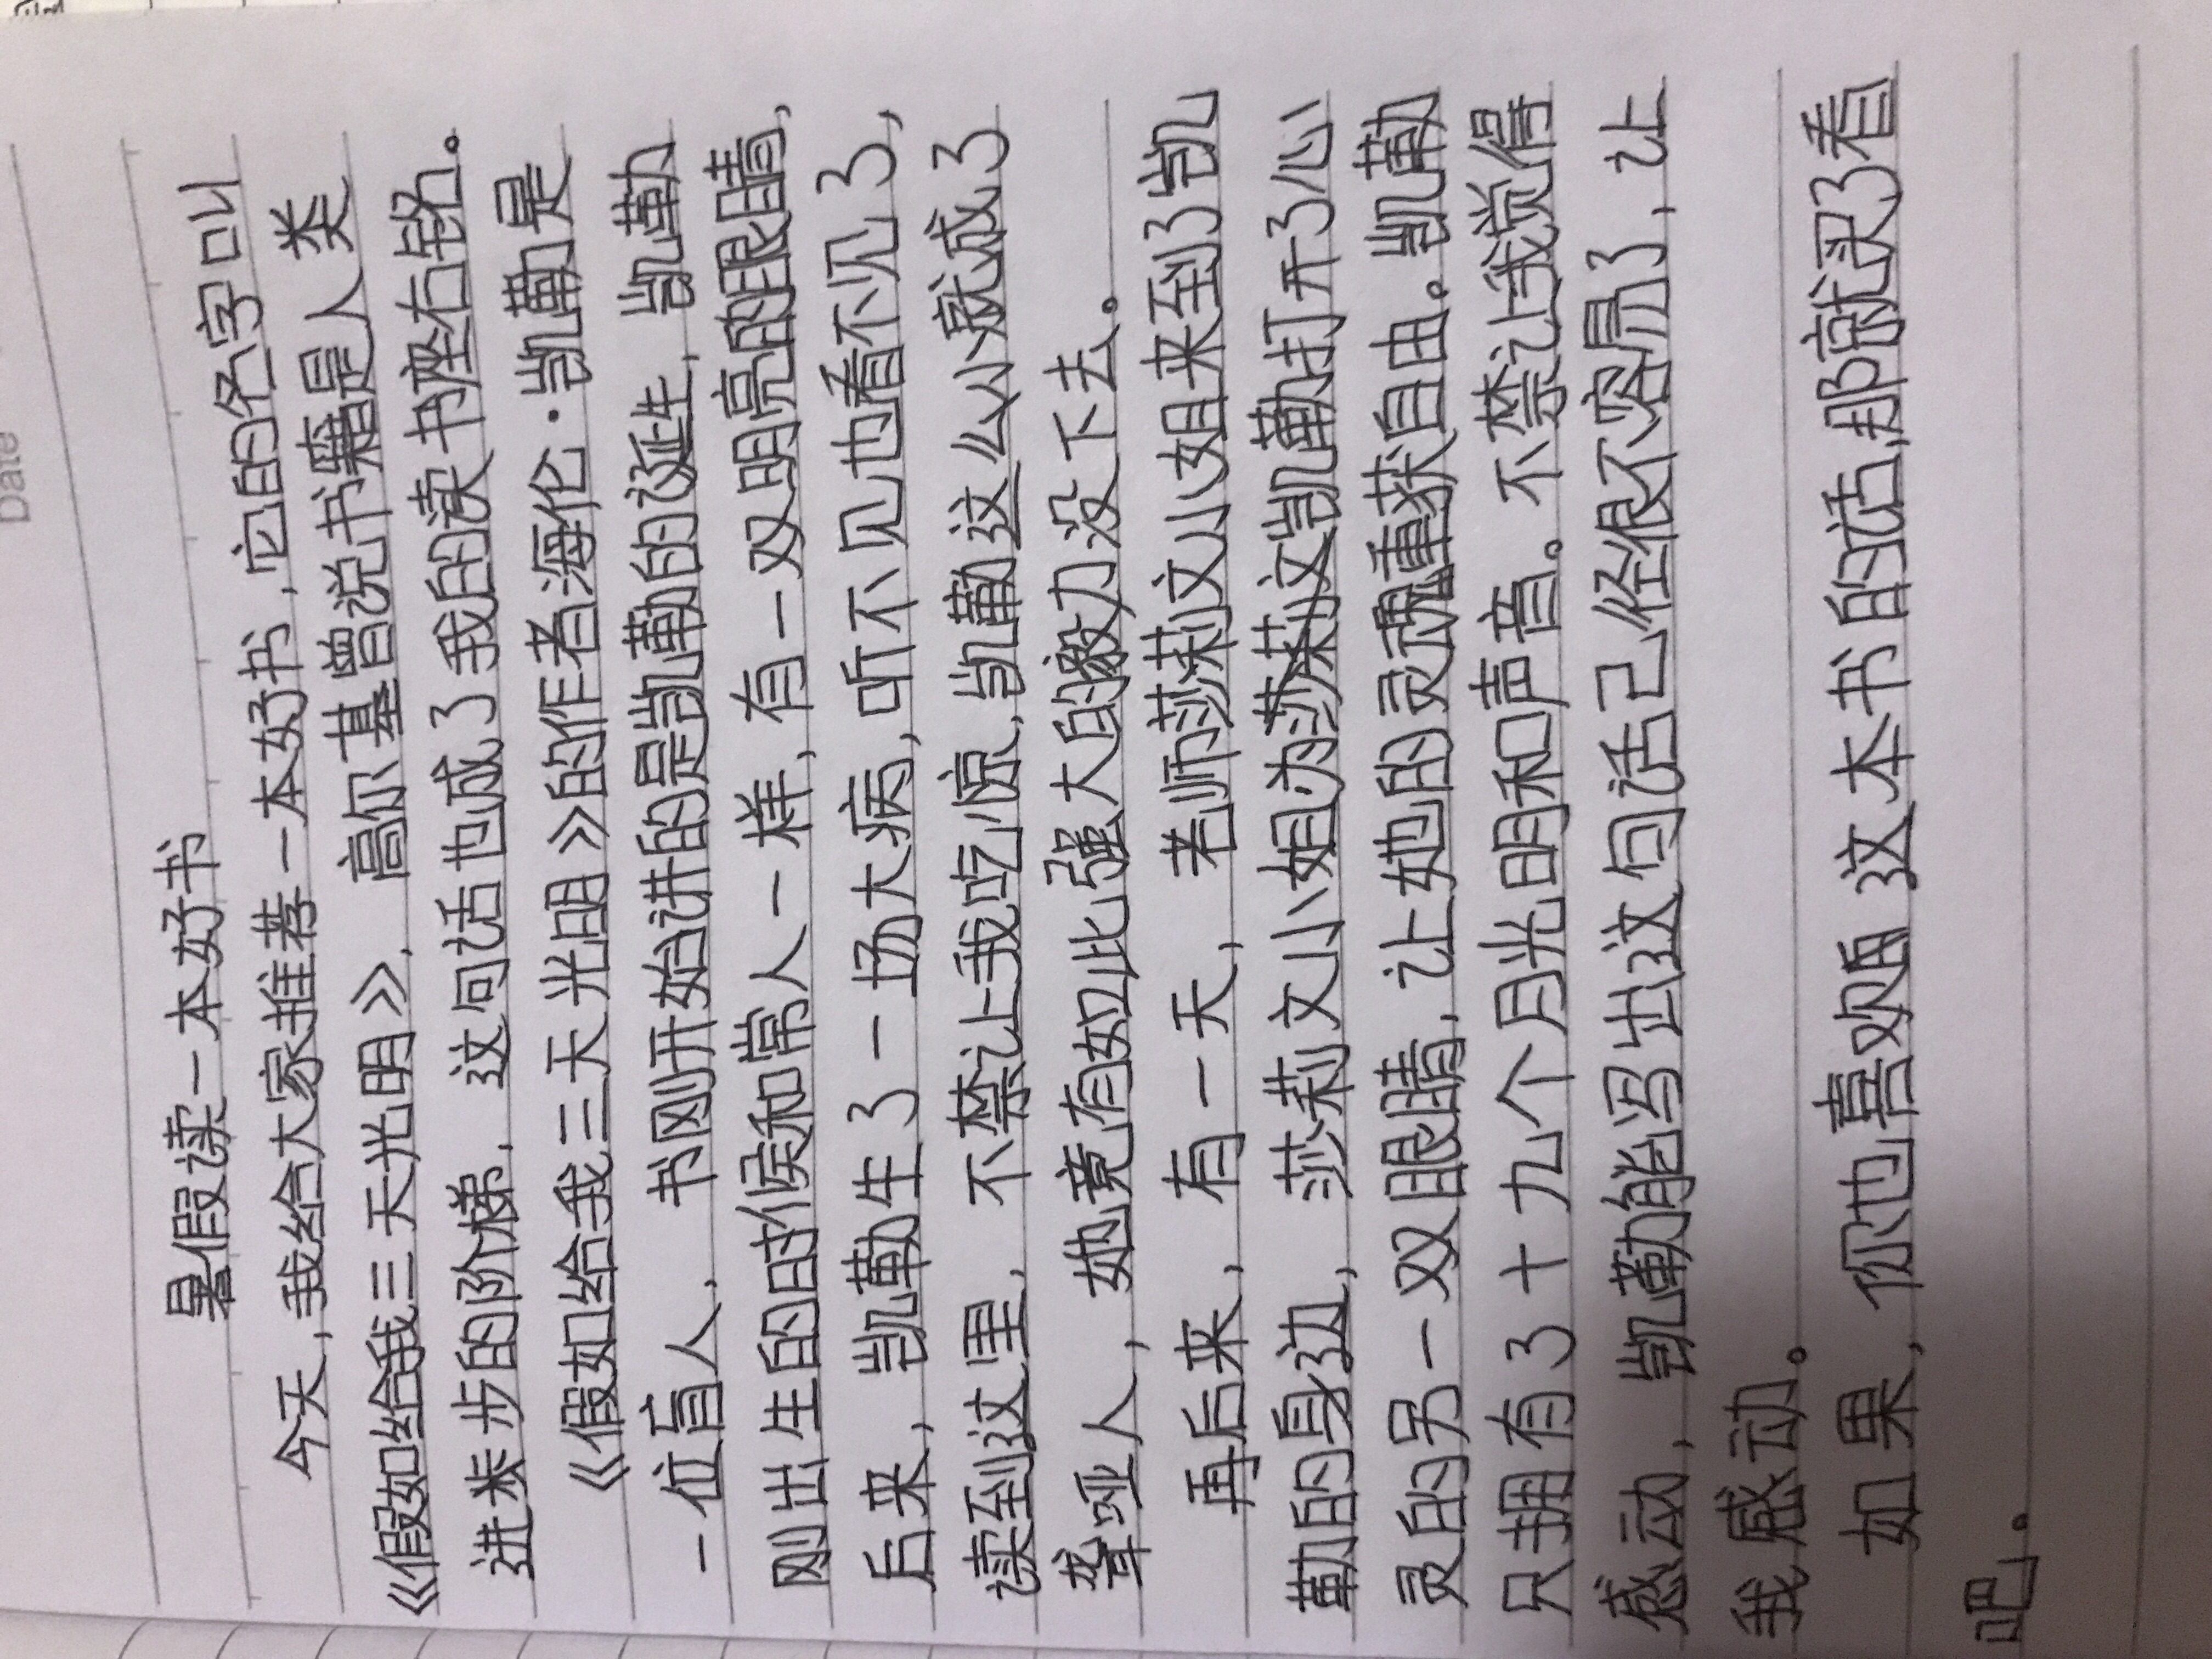 Date
暑假读一本好书
今天,我给大家推荐一本好书,它的名字叫
《假如给我三天光明》,高尔基曾说书籍是人类
进步的阶梯,这句话也成了我的读书座右铭。
《假如给我三天光明》的作者海伦·凯勒是
一位盲人,书刚开始讲的是凯勒的诞生,凯勒
刚出生的时候和常人一样,有一双明亮的眼睛,
后来,凯勒生了一场大病,听不见也看不见了,
读到这里,不禁让我吃惊,凯勒这么小就成了
聋哑人,她竟有如此强大的毅力没下去。
再后来,有一天,老师莎莉文小姐来到了凯
勒的身边,莎莉文小姐为凯勒打开了心
灵的另一双眼睛,让她的灵魂重获自由。凯勒
只拥有了十九个月光明和声音。不禁让我觉得
感动,凯勒能写出这句话已经很不容易了,让
我感动。
如果,你也喜欢看这本书的话,那就买了看
吧。